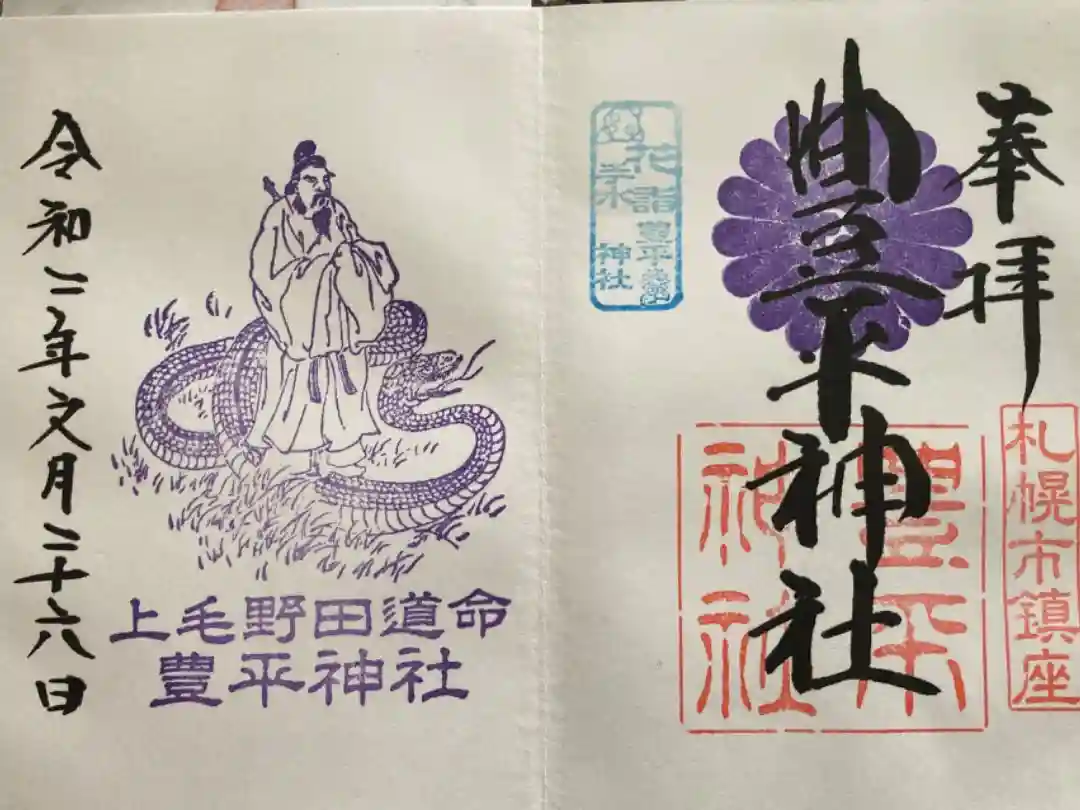 奉拝
豊平神社
札幌市鎮座
豊平
神社
花詣
豊平
神社
令和二年文月二十六日
上毛野田道命
豊平神社